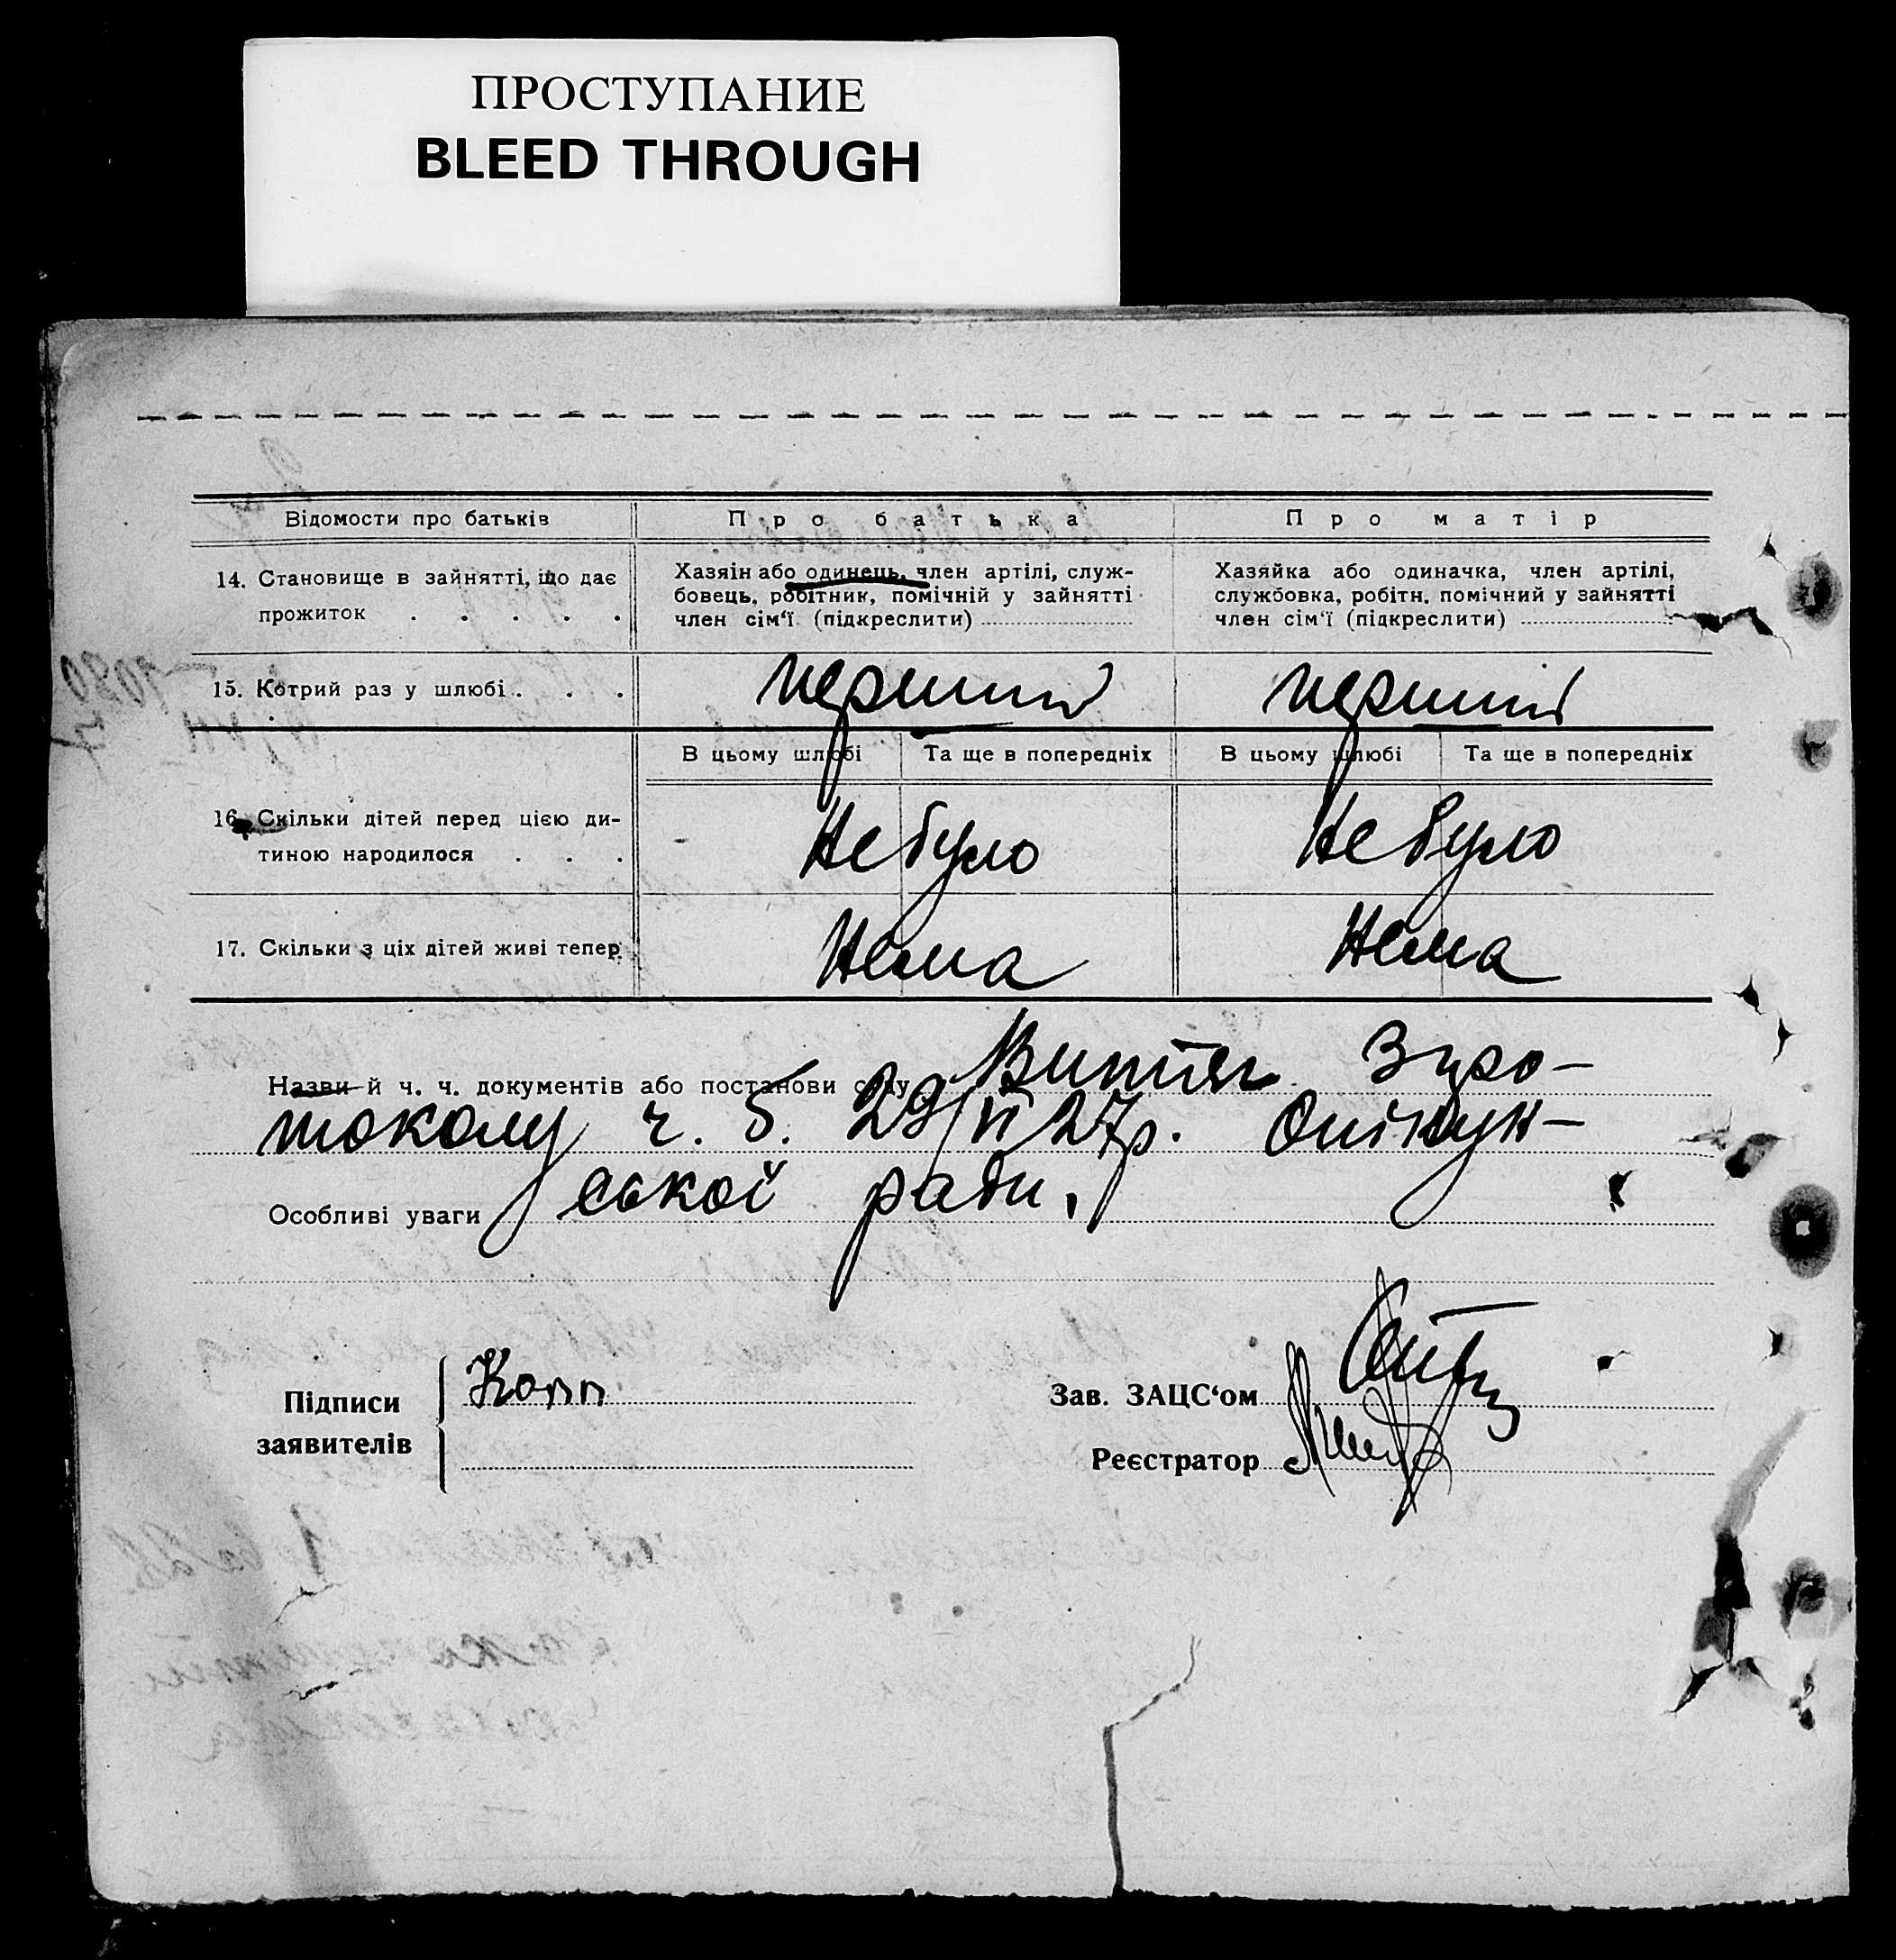 ПРОСТУПАНИЕ
BLEED THROUGH
Відомости про батьків
Про батька
Про матір
14. Становище в зайнятті, що дає
прожиток . . . . .
Хазяін або одинець, член артілі, служ-
бовець, робітник, помічній у зайнятті
член сім‘ї (підкреслити)
Хазяйка або одиначка, член артілі,
службовка, робітн. помічний у зайнятті
член сім‘ї (підкреслити)
15. Котрий раз у шлюбі . . .
перший
перший
В цьому шлюбі
Та ще в попередніх
В цьому шлюбі
Та ще в попередніх
16. Скільки дітей перед цією ди-
тиною народилося . . .
Не було
Не було
17. Скільки з ціх дітей живі тепер.
Нема
Нема
Назви й ч. ч. документів або постанови суду Витяг з про-
токолу ч. 5. 29/VI 27р. Опікун-
Особливі уваги ської ради.
Підписи
заявителів
Копп
Зав. ЗАЦС‘ом
Реєстратор